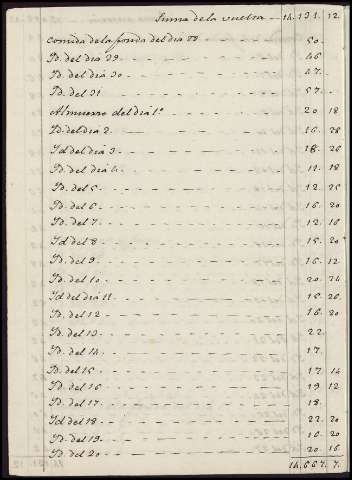 Suma de la vuelta -- 14.131. 12.
Comida de la fonda del dia 28 50.
Yd. del dia 29. 46.
Yd. del dia 30. 47.
Yd. del 31 57.
Almuerzo del dia 1º 20 18
Yd. del dia 2. 16. 28
Yd. del dia 3. 18. 26
Yd. del dia 4. 11. 18
Yd. del 5 12. 26
Yd. del 6 16. 20
Yd. del 7. 12. 16
Yd. del 8 15. 20
Yd. del 9. 16. 12
Yd. del 10 20. 24
Yd. del dia 11 15. 26.
Yd. del 12 16. 20
Yd. del 13 22.
Yd. del 14 17.
Yd. del 15 17. 14
Yd. del 16 19 12
Yd. del 17. 18.
Yd. del 18 22. 20
Yd. del 19. 16. 20
Yd. del 20 20. 16
14.667. 7.